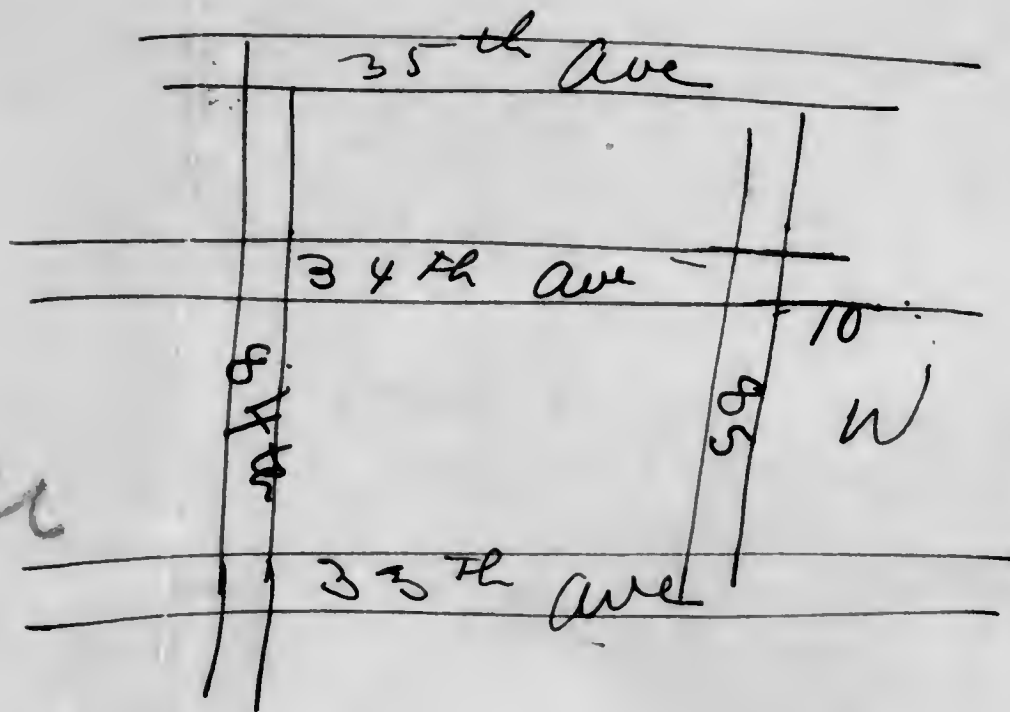 35th Ave
34th Ave
10
85
W
33th Ave